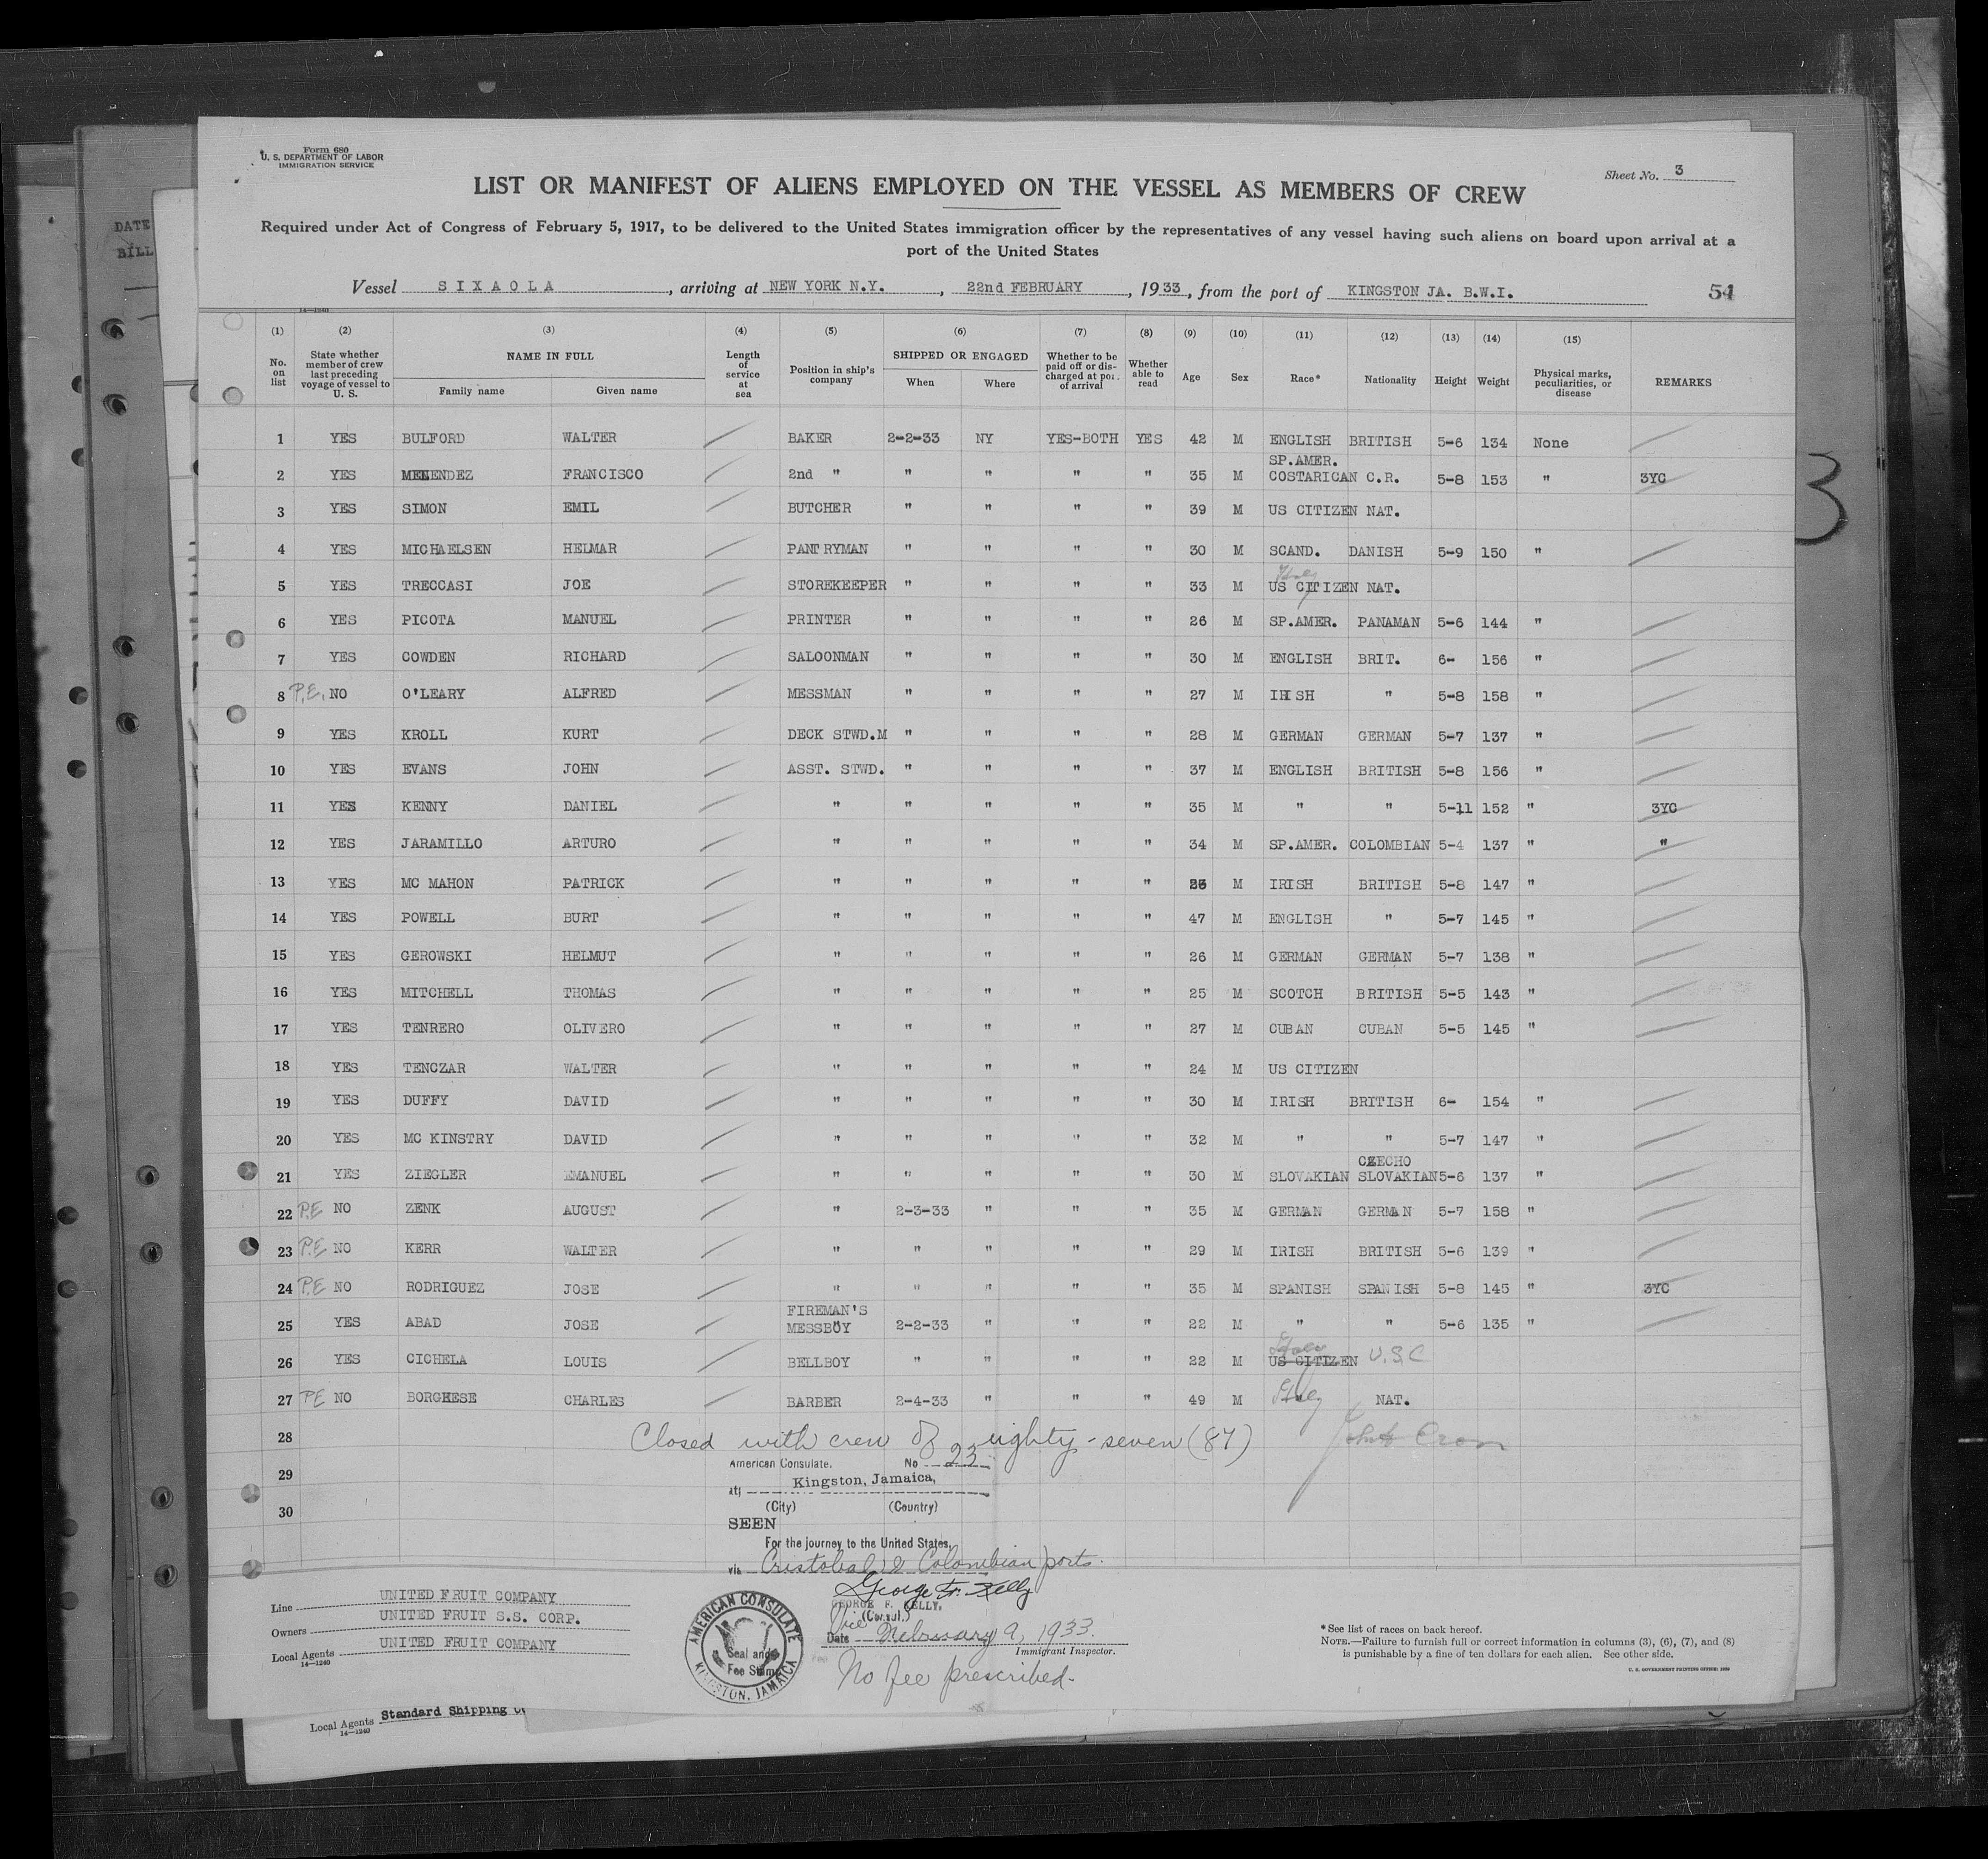 Form 680
U. S. DEPARTMENT OF LABOR
IMMIGRATION SERVICE
Sheet No. 3
LIST OR MANIFEST OF ALIENS EMPLOYED ON THE VESSEL AS MEMBERS OF CREW
Required under Act of Congress of February 5, 1917, to be delivered to the United States immigration officer by the representatives of any vessel having such aliens on board upon arrival at a
port of the United States
Vessel SIXAOLA, arriving at NEW YORK N.Y., 22nd FEBRUARY, 1933, from the port of KINGSTON JA. B.W.I. 54
14—1240
(1) (2) (3) (4) (5) (6) (7) (8) (9) (10) (11) (12) (13) (14) (15)
No. on list State whether member of crew last preceding voyage of vessel to U. S. NAME IN FULL Family name Given name Length of service at sea Position in ship's company SHIPPED OR ENGAGED When Where Whether to be paid off or discharged at port of arrival Whether able to read Age Sex Race* Nationality Height Weight Physical marks, peculiarities, or disease REMARKS
1 YES BULFORD WALTER BAKER 2-2-33 NY YES-BOTH YES 42 M ENGLISH BRITISH 5-6 134 None
2 YES MENENDEZ FRANCISCO 2nd " " " " " 35 M SP.AMER. COSTARICAN C.R. 5-8 153 " 3YC
3 YES SIMON EMIL BUTCHER " " " " 39 M US CITIZEN NAT.
4 YES MICHAELSEN HELMAR PANTRYMAN " " " " 30 M SCAND. DANISH 5-9 150 "
5 YES TRECCASI JOE STOREKEEPER " " " " 33 M Italy US CITIZEN NAT.
6 YES PICOTA MANUEL PRINTER " " " " 26 M SP.AMER. PANAMAN 5-6 144 "
7 YES COWDEN RICHARD SALOONMAN " " " " 30 M ENGLISH BRIT. 6- 156 "
8 P.E. NO O'LEARY ALFRED MESSMAN " " " " 27 M IRISH " 5-8 158 "
9 YES KROLL KURT DECK STWD.M " " " " 28 M GERMAN GERMAN 5-7 137 "
10 YES EVANS JOHN ASST. STWD. " " " " 37 M ENGLISH BRITISH 5-8 156 "
11 YES KENNY DANIEL " " " " " 35 M " " 5-11 152 " 3YC
12 YES JARAMILLO ARTURO " " " " " 34 M SP.AMER. COLOMBIAN 5-4 137 " "
13 YES MC MAHON PATRICK " " " " " M IRISH BRITISH 5-8 147 "
14 YES POWELL BURT " " " " " 47 M ENGLISH " 5-7 145 "
15 YES GEROWSKI HELMUT " " " " " 26 M GERMAN GERMAN 5-7 138 "
16 YES MITCHELL THOMAS " " " " " 25 M SCOTCH BRITISH 5-5 143 "
17 YES TENRERO OLIVERO " " " " " 27 M CUBAN CUBAN 5-5 145 "
18 YES TENCZAR WALTER " " " " " 24 M US CITIZEN
19 YES DUFFY DAVID " " " " " 30 M IRISH BRITISH 6- 154 "
20 YES MC KINSTRY DAVID " " " " " 32 M " " 5-7 147 "
21 YES ZIEGLER EMANUEL " " " " " 30 M SLOVAKIAN CZECHO SLOVAKIAN 5-6 137 "
22 P.E NO ZENK AUGUST " 2-3-33 " " " 35 M GERMAN GERMAN 5-7 158 "
23 P.E NO KERR WALTER " " " " " 29 M IRISH BRITISH 5-6 139 "
24 P.E NO RODRIGUEZ JOSE " " " " " 35 M SPANISH SPANISH 5-8 145 " 3YC
25 YES ABAD JOSE FIREMAN'S MESSBOY 2-2-33 " " " 22 M " " 5-6 135 "
26 YES CICHELA LOUIS BELLBOY " " " " 22 M Italy US CITIZEN U.S.C
27 P.E NO BORGHESE CHARLES BARBER 2-4-33 " " " 49 M Italy NAT.
28 Closed with crew of eighty-seven (87)
American Consulate, No 23
29
at Kingston, Jamaica,
(City) (Country)
30
SEEN
For the journey to the United States,
via Cristobal & Colombian ports.
George F. Kelly
GEORGE F. KELLY,
Vice (Consul.)
Date February 9, 1933.
Immigrant Inspector.
No fee prescribed.
AMERICAN CONSULATE
KINGSTON, JAMAICA
Seal and
Fee Stamp
Line UNITED FRUIT COMPANY
Owners UNITED FRUIT S.S. CORP.
Local Agents UNITED FRUIT COMPANY
14—1240
*See list of races on back hereof.
NOTE.—Failure to furnish full or correct information in columns (3), (6), (7), and (8)
is punishable by a fine of ten dollars for each alien. See other side.
U. S. GOVERNMENT PRINTING OFFICE
Local Agents Standard Shipping
14—1240
DATE
BILL
3